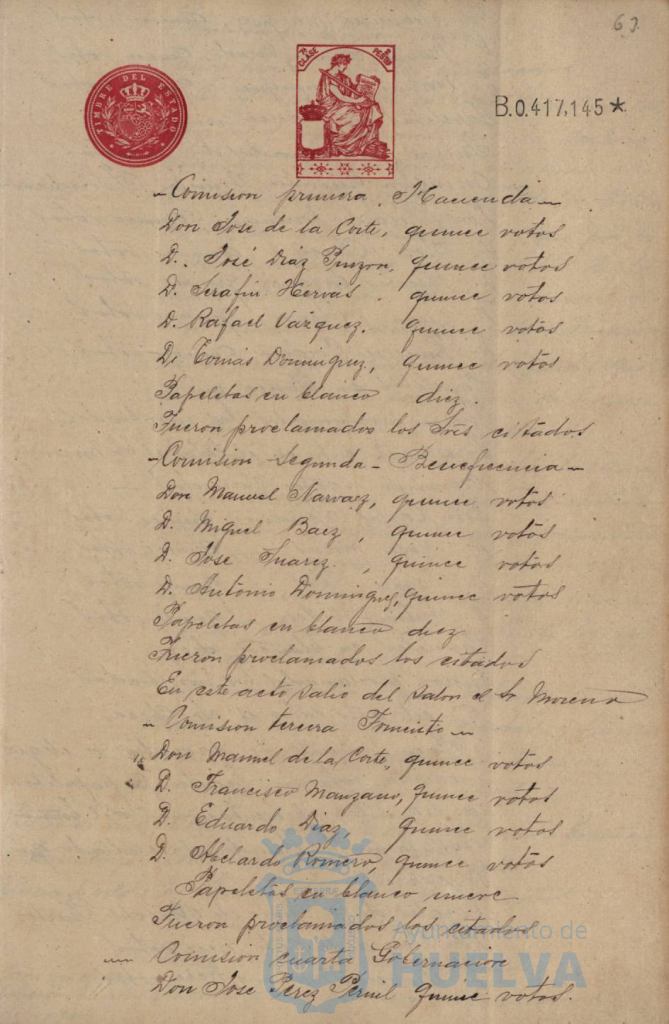 63
TIMBRE DEL ESTADO
CLASE PESETAS
B.0.417,145*
- Comision primera. Hacienda -
Don Jose de la Corte, quince votos
D. José Díaz Pinzon, quince votos
D. Serafin Hervás, quince votos
D. Rafael Vázquez. quince votos
D. Tomás Dominguez, quince votos
Papeletas en blanco diez.
Fueron proclamados los Srés citados
- Comision Segunda - Beneficencia -
Don Manuel Narvaez, quince votos
D. Miguel Baez, quince votos
D. Jose Suarez, quince votos
D. Antonio Dominguez, quince votos
Papeletas en blanco diez
Fueron proclamados los citados
En este acto salio del salon el Sr Moreno
- Comision tercera Fomento -
Don Manuel de la Corte, quince votos
D. Francisco Manzano, quince votos
D. Eduardo Diaz, quince votos
D. Abelardo Romero, quince votos
Papeletas en blanco nueve
Fueron proclamados los citados
Comision cuarta Gobernacion
Don Jose Perez quince votos.
Ayuntamiento de
HUELVA